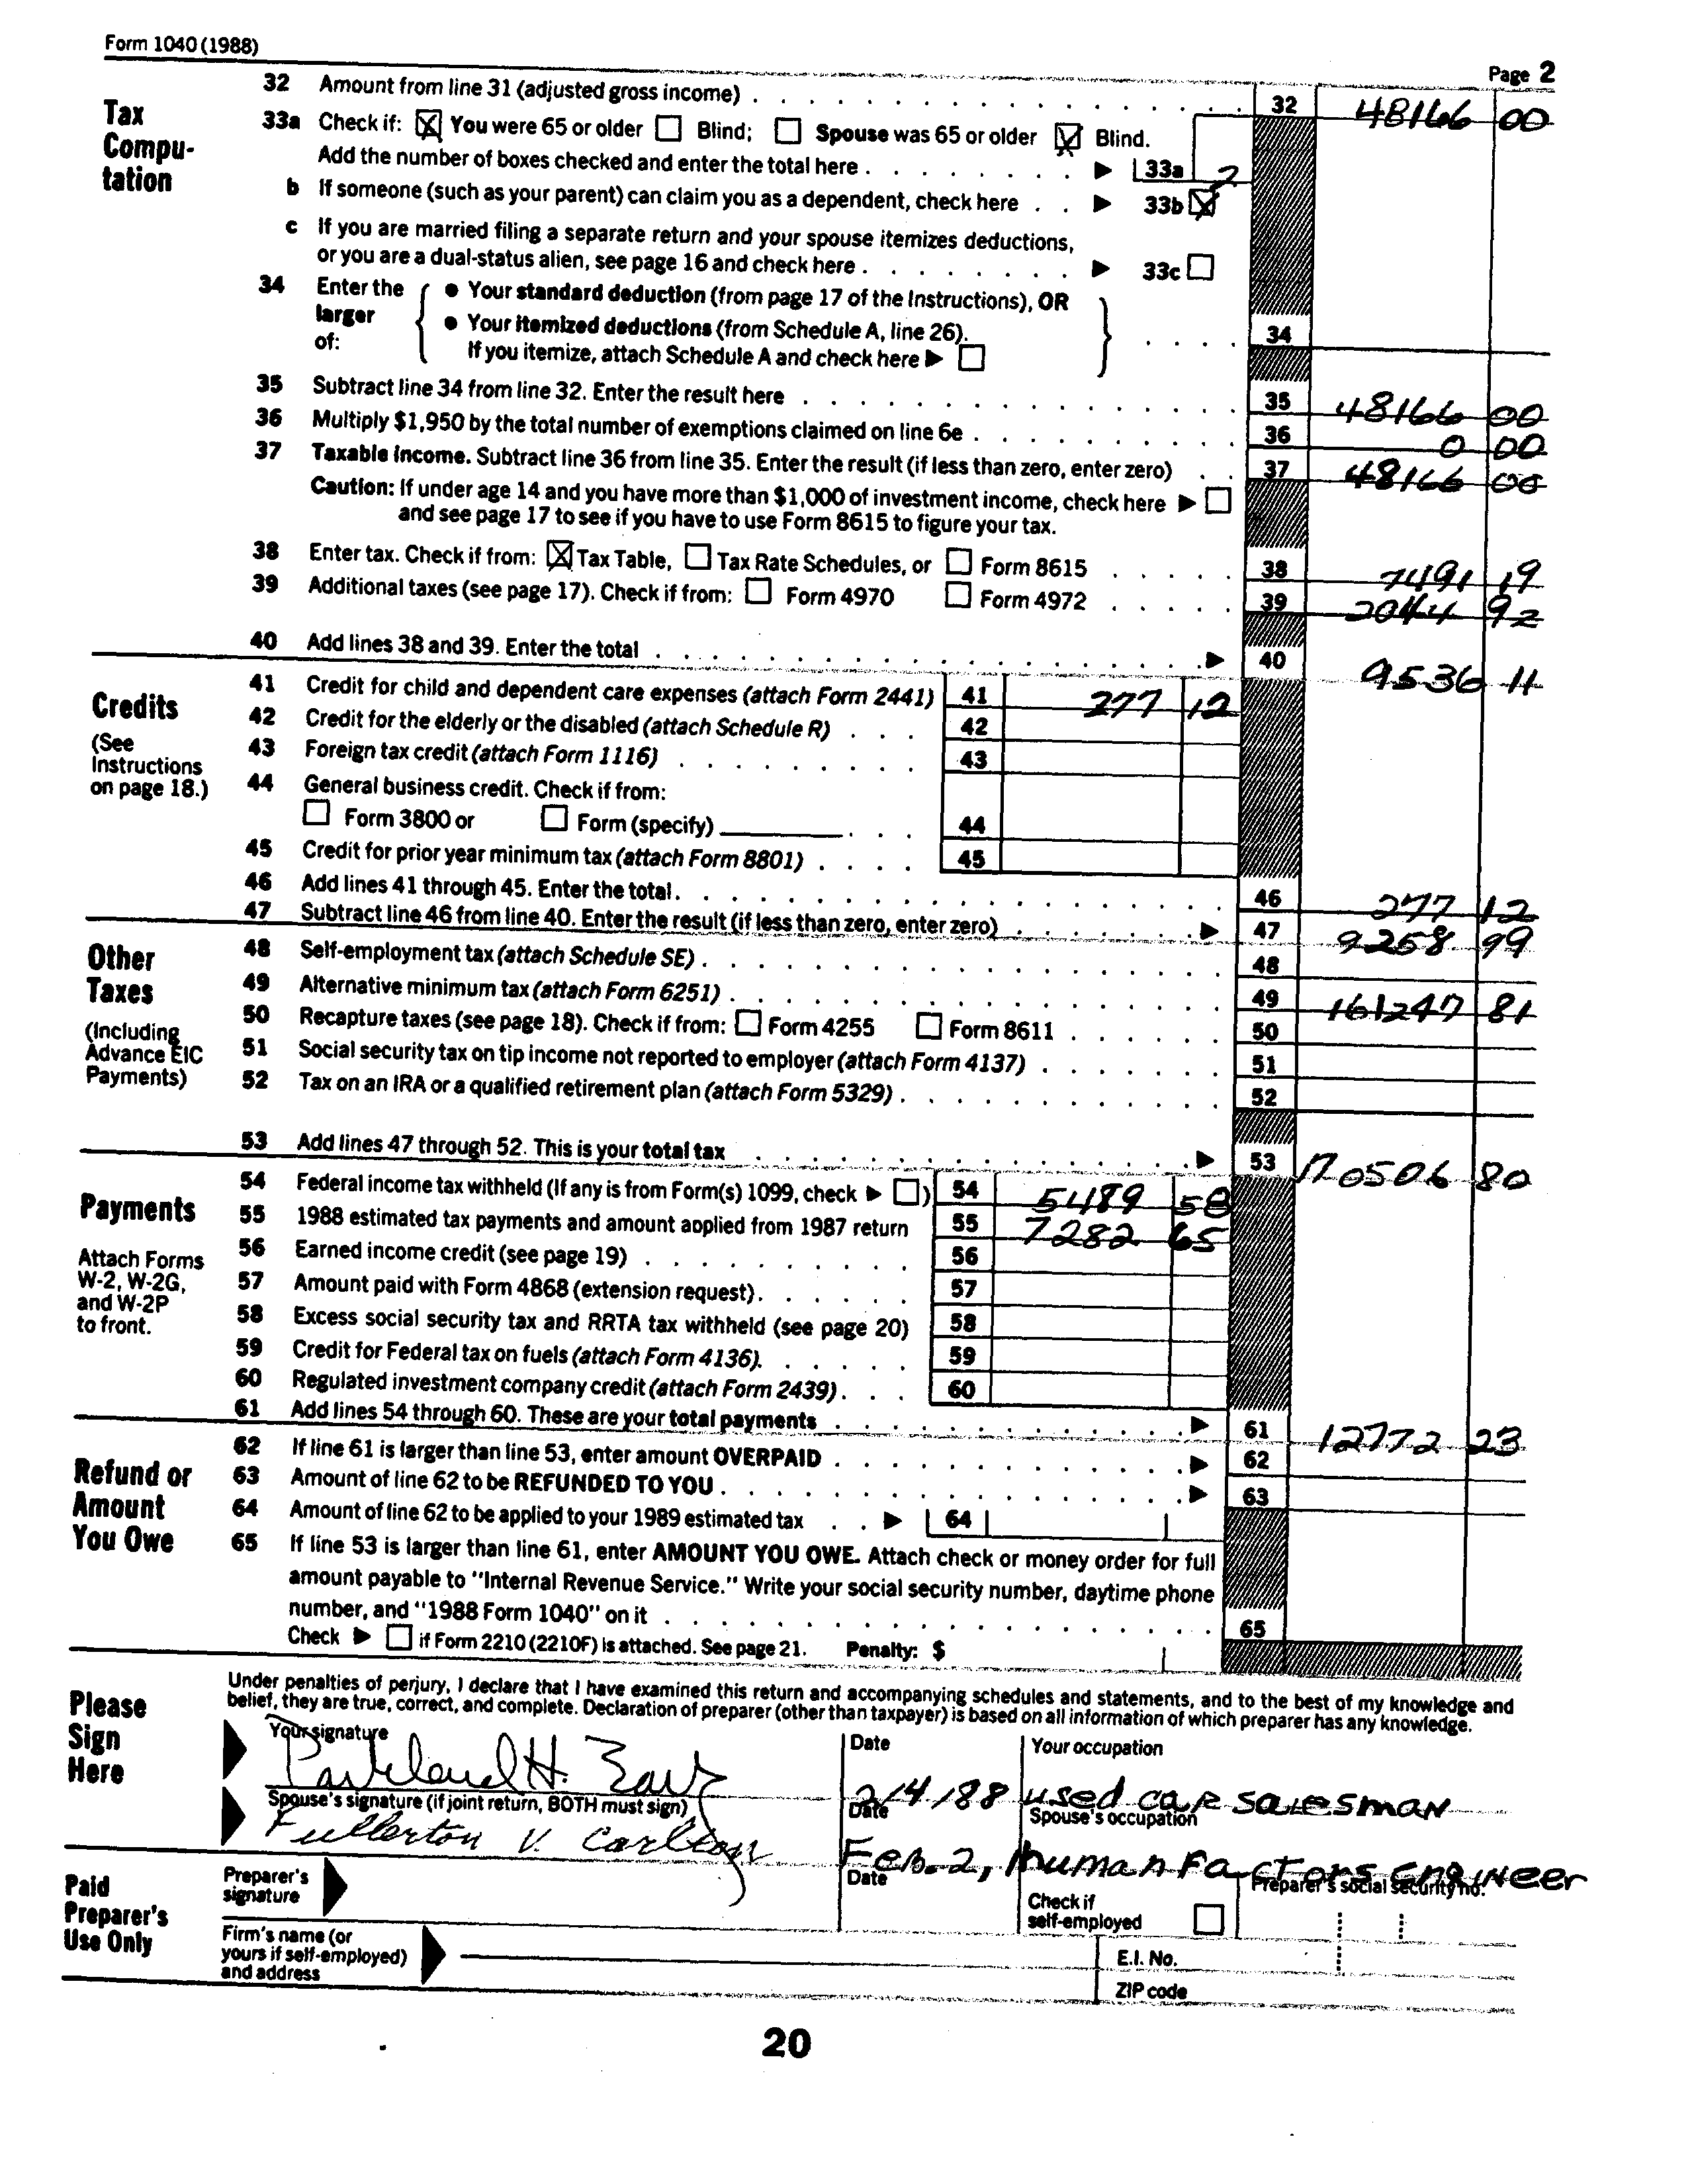 Form 1040 (1988)
Page 2
Tax Compu-tation
32 Amount from line 31 (adjusted gross income) 32 48166 00
33a Check if: ☒ You were 65 or older ☐ Blind; ☐ Spouse was 65 or older ☒ Blind.
Add the number of boxes checked and enter the total here 33a 2
b If someone (such as your parent) can claim you as a dependent, check here 33b ☒
c If you are married filing a separate return and your spouse itemizes deductions,
or you are a dual-status alien, see page 16 and check here 33c ☐
34 Enter the larger of: • Your standard deduction (from page 17 of the Instructions), OR
• Your itemized deductions (from Schedule A, line 26). 34
If you itemize, attach Schedule A and check here ▶ ☐
35 Subtract line 34 from line 32. Enter the result here 35 48166 00
36 Multiply $1,950 by the total number of exemptions claimed on line 6e 36 0 00
37 Taxable income. Subtract line 36 from line 35. Enter the result (if less than zero, enter zero) 37 48166 00
Caution: If under age 14 and you have more than $1,000 of investment income, check here ▶ ☐
and see page 17 to see if you have to use Form 8615 to figure your tax.
38 Enter tax. Check if from: ☒ Tax Table, ☐ Tax Rate Schedules, or ☐ Form 8615 38 7491 19
39 Additional taxes (see page 17). Check if from: ☐ Form 4970 ☐ Form 4972 39 2044 92
40 Add lines 38 and 39. Enter the total ▶ 40 9536 11
Credits
(See Instructions on page 18.)
41 Credit for child and dependent care expenses (attach Form 2441) 41 277 12
42 Credit for the elderly or the disabled (attach Schedule R) 42
43 Foreign tax credit (attach Form 1116) 43
44 General business credit. Check if from:
☐ Form 3800 or ☐ Form (specify) 44
45 Credit for prior year minimum tax (attach Form 8801) 45
46 Add lines 41 through 45. Enter the total 46 277 12
47 Subtract line 46 from line 40. Enter the result (if less than zero, enter zero) ▶ 47 9258 99
Other Taxes
(Including Advance EIC Payments)
48 Self-employment tax (attach Schedule SE) 48
49 Alternative minimum tax (attach Form 6251) 49 161247 81
50 Recapture taxes (see page 18). Check if from: ☐ Form 4255 ☐ Form 8611 50
51 Social security tax on tip income not reported to employer (attach Form 4137) 51
52 Tax on an IRA or a qualified retirement plan (attach Form 5329) 52
53 Add lines 47 through 52. This is your total tax ▶ 53 170506 80
Payments
Attach Forms W-2, W-2G, and W-2P to front.
54 Federal income tax withheld (If any is from Form(s) 1099, check ▶ ☐) 54 5489 58
55 1988 estimated tax payments and amount applied from 1987 return 55 7282 65
56 Earned income credit (see page 19) 56
57 Amount paid with Form 4868 (extension request) 57
58 Excess social security tax and RRTA tax withheld (see page 20) 58
59 Credit for Federal tax on fuels (attach Form 4136) 59
60 Regulated investment company credit (attach Form 2439) 60
61 Add lines 54 through 60. These are your total payments ▶ 61 12772 23
Refund or Amount You Owe
62 If line 61 is larger than line 53, enter amount OVERPAID ▶ 62
63 Amount of line 62 to be REFUNDED TO YOU ▶ 63
64 Amount of line 62 to be applied to your 1989 estimated tax ▶ 64
65 If line 53 is larger than line 61, enter AMOUNT YOU OWE. Attach check or money order for full
amount payable to "Internal Revenue Service." Write your social security number, daytime phone
number, and "1988 Form 1040" on it 65
Check ▶ ☐ if Form 2210 (2210F) is attached. See page 21. Penalty: $
Please Sign Here
Under penalties of perjury, I declare that I have examined this return and accompanying schedules and statements, and to the best of my knowledge and
belief, they are true, correct, and complete. Declaration of preparer (other than taxpayer) is based on all information of which preparer has any knowledge.
Your signature Date Your occupation
H. 2/4/88 used car salesman
Spouse's signature (if joint return, BOTH must sign) Date Spouse's occupation
Fullerton V. Carlton Feb. 2, human factors engineer
Paid Preparer's Use Only
Preparer's signature Date Check if self-employed ☐ Preparer's social security no.
Firm's name (or yours if self-employed) and address E.I. No.
ZIP code
20